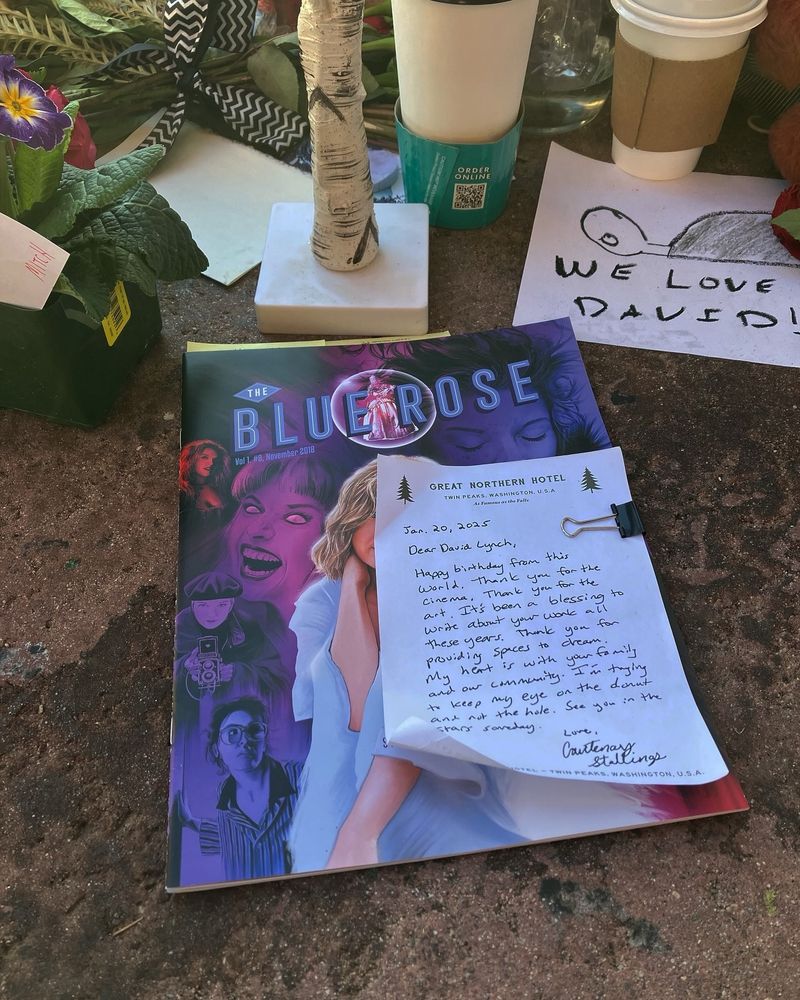 ORDER
ONLINE
MITCH
WE LOVE
DAVID!
THE
BLUE ROSE
Vol 1, #8, November 2018
GREAT NORTHERN HOTEL
TWIN PEAKS, WASHINGTON, U.S.A.
As Famous as the Falls
Jan. 20, 2025
Dear David Lynch,
Happy birthday from this
world. Thank you for the
cinema. Thank you for the
art. It's been a blessing to
write about your work all
these years. Thank you for
providing spaces to dream.
My heart is with your family
and our community. I'm trying
to keep my eye on the donut
and not the hole. See you in the
stars someday.
Love,
Courtenay
Stallings
HOTEL – TWIN PEAKS, WASHINGTON, U.S.A.